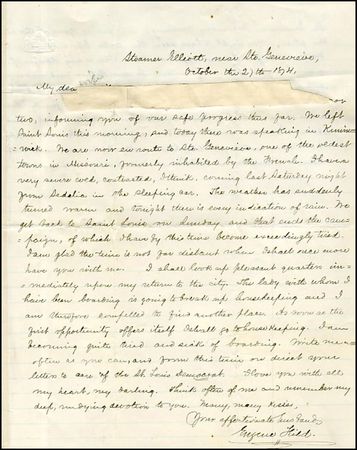 Steamer Elliott, near Ste. Genevieve,
October the 27th 1874.
My dea
two, informing you of our safe progress thus far. We left
Saint Louis this morning, and today there was speaking in Kimms-
wick. We are now en route to Ste. Genevieve, one of the oldest
towns in Missouri, formerly inhabited by the French. I have a
very severe cold, contracted, I think, coming last Saturday night
from Sedalia in the sleeping car. The weather has suddenly
turned warm and tonight there is every indication of rain. We
get back to Saint Louis on Sunday and that ends the cam-
paign, of which I have by this time become exceedingly tired.
I am glad the time is not far distant when I shall once more
have you with me. I shall look up pleasant quarters im-
mediately upon my return to the city. The lady with whom I
have been boarding is going to break up housekeeping and I
am therefore compelled to find another place. As soon as the
first opportunity offers itself I shall go to housekeeping. I am
becoming quite tired and sick of boarding. Write me as
often as you can, and from this time on direct your
letters to care of the St. Louis Democrat. I love you with all
my heart, my darling. Think often of me and remember my
deep, undying devotion to you. Many, many kisses,
Your affectionate husband,
Eugene Field.